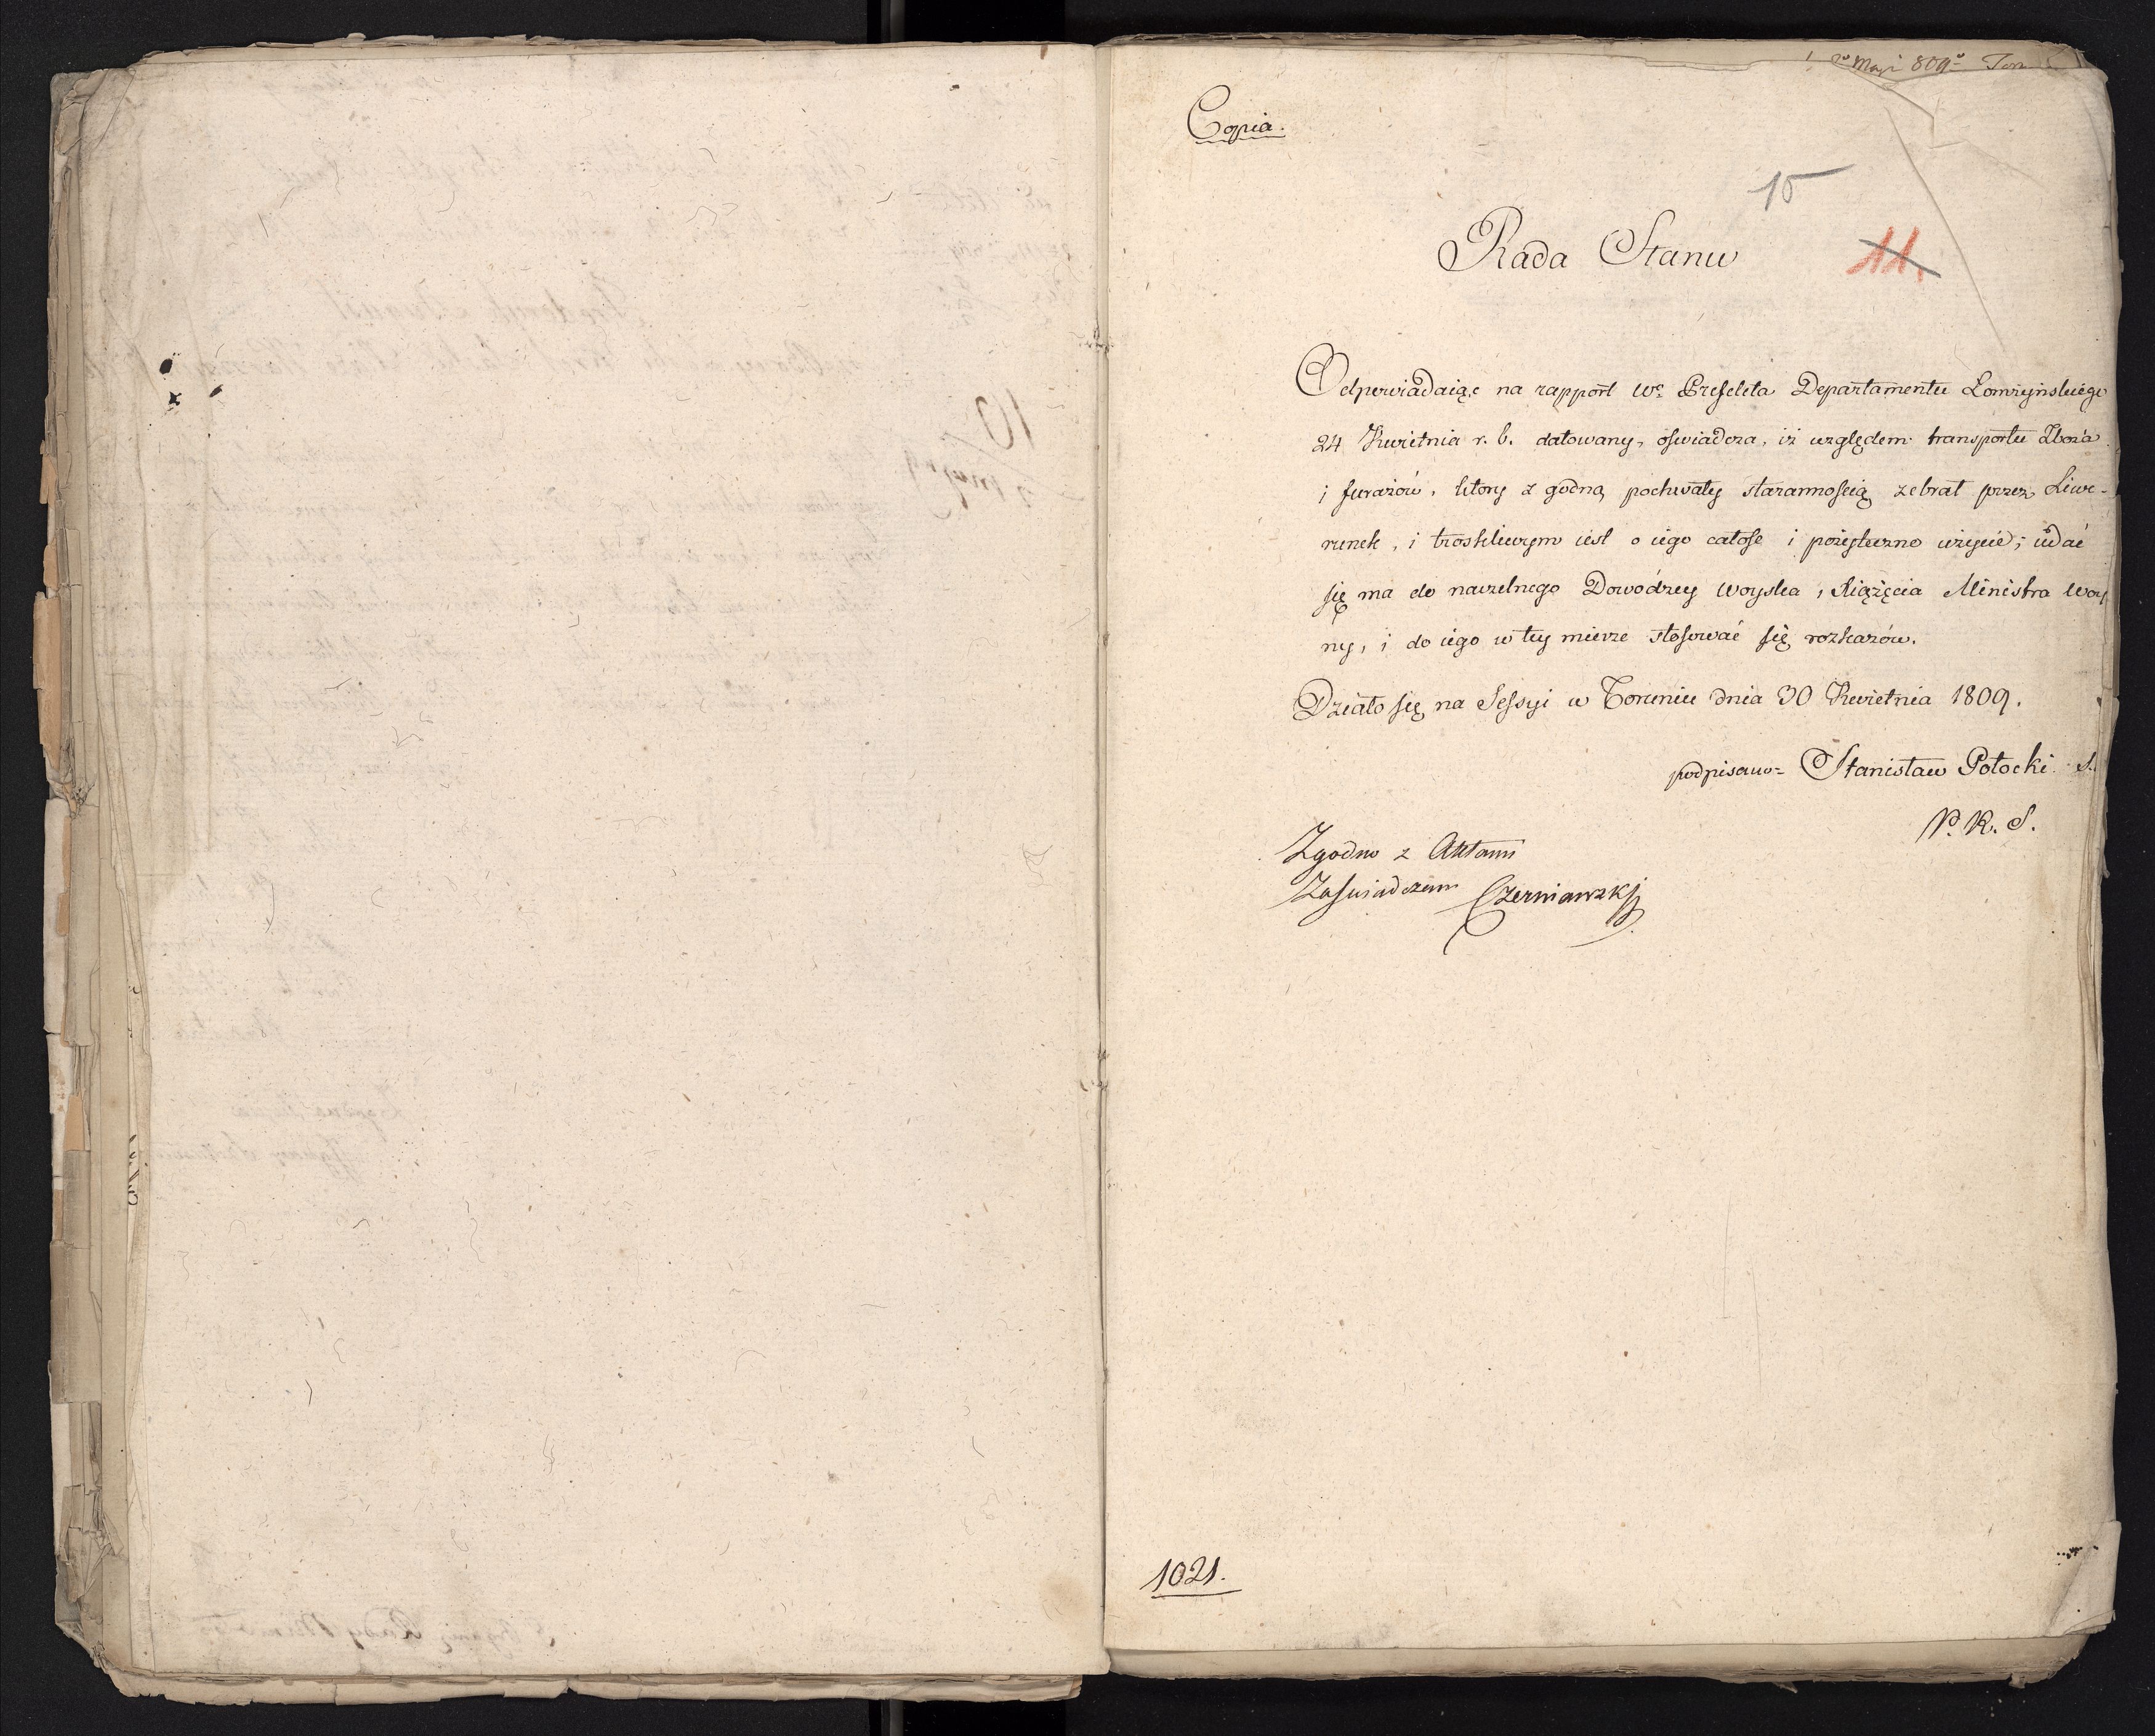 Maji 809
Copia.
15
Rada Stanu
11.
Odpowiadaiąc na rapport Wº Prefekta Departamentu Łomżyńskiego
24 Kwietnia r. b. datowany, oswiadcza, iż względem transportu Zboża
i furażów, ktory z godną pochwały starannością zebrał przez Liwe-
runek, i troskliwym iest o iego całość i pożyteczne użycie; udać
się ma do naczelnego Dowódzcy woyska, Xiążęcia Ministra Woy
ny, i do iego w tey mierze stosować się rozkazów.
Działo się na Sessyi w Toruniu dnia 30 Kwietnia 1809.
podpisano= Stanisław Potocki. S.
P. R. S.
Zgodno z Aktami
Zaświadczam Czerniawzkij
1021.